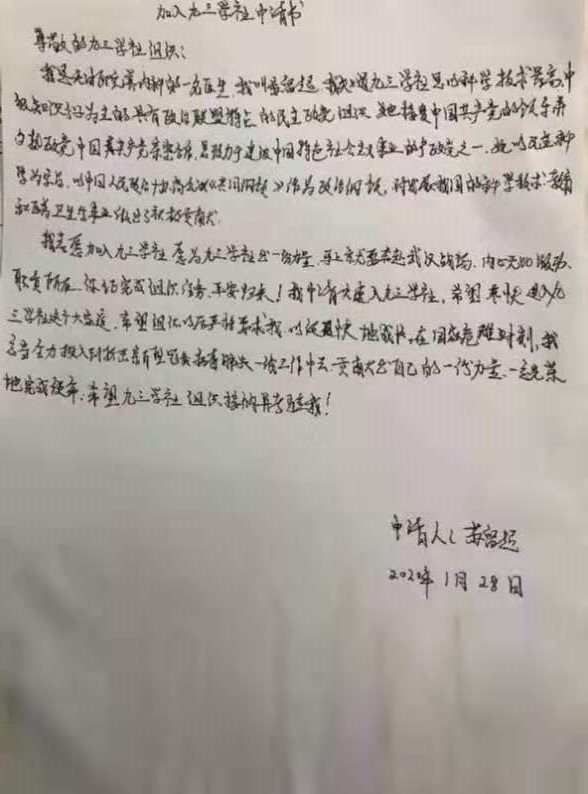 加入九三学社申请书
尊敬的九三学社组织:
我是 内科的一名医生,我叫 超,我知道九三学社是以科学技术界高、中
级知识分子为主的具有政治联盟特点的民主政党组织,她接受中国共产党的领导,
中国共产党亲密合作,是致力于建设中国特色社会主义事业的参政党之一,她以民主和科
学为宗旨,以中国人民政治协商会议《共同纲领》作为政治纲领,对发展我国的科学技术、教育
和医药卫生事业做出了积极贡献。
我志愿加入九三学社,愿为九三学社出一份力量,马上就要奔赴武汉战场,内心
职责所在,保证完成组织任务,平安归来!我申请 进入九三学社,希望尽快进入九
三学社这个大家庭,希望组织以后严格要求我,以便更快地成长,在国家危难时刻,我
应当全力投入到抗击新型冠状病毒肺炎一线工作中去,贡献出自己的一份力量,一定光荣
地完成使命,希望九三学社组织接纳并考验我!
申请人: 超
2020年1月28日